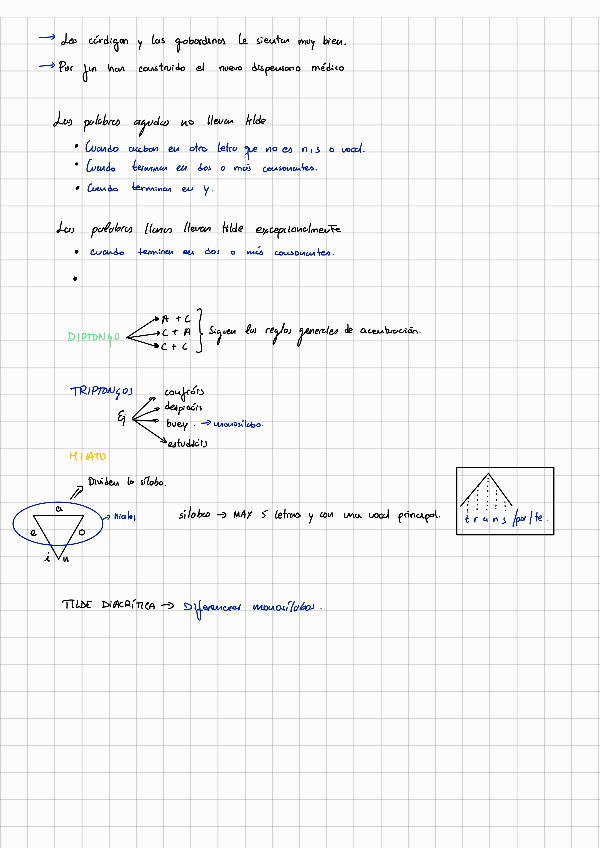 → Los cárdigan y las gabardinas le sientan muy bien.
→ Por fin han construido el nuevo dispensario médico
Las palabras agudas no llevan tilde
• Cuando acaban en otra letra que no es n, s o vocal.
• Cuando terminan en dos o más consonantes.
• Cuando terminan en y.
Las palabras llanas llevan tilde excepcionalmente
• Cuando terminen en dos o más consonantes.
•
DIPTONGO
A + C
C + A
C + C
Siguen las reglas generales de acentuación.
TRIPTONGOS
Ej
confiáis
despreciáis
buey. → monosílabo.
estudiáis
HIATO
Dividen la sílaba.
a
e
o
i
u
hiatos
sílabas → MAX 5 letras y con una vocal principal.
t r a n s / por / te.
TILDE DIACRÍTICA → Diferenciar monosílabos.